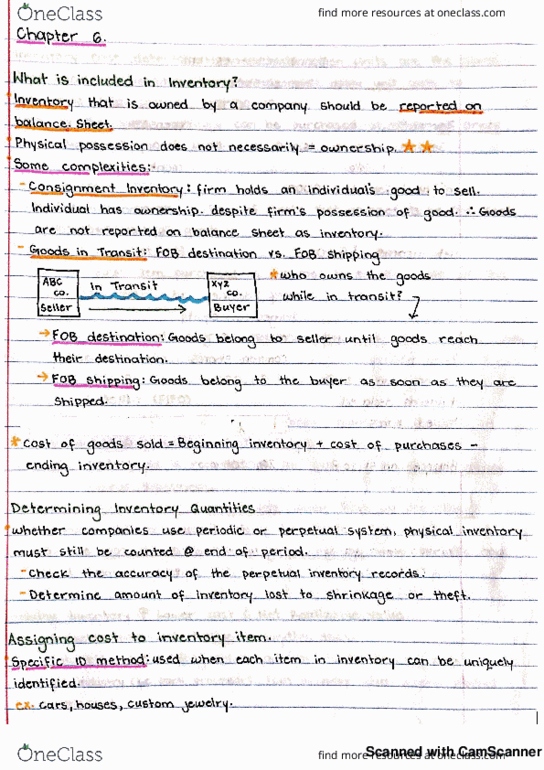 OneClass
find more resources at oneclass.com
Chapter 6.
What is included in Inventory?
Inventory that is owned by a company should be reported on
balance sheet.
Physical possession does not necessarily = ownership. ★★
Some complexities:
- Consignment Inventory: firm holds an individual's good to sell.
Individual has ownership despite firm's possession of good. ∴ Goods
are not reported on balance sheet as inventory.
- Goods in Transit: FOB destination vs. FOB shipping
ABC
co.
Seller
In Transit
XYZ
co.
Buyer
*who owns the goods
while in transit?
→ FOB destination: Goods belong to seller until goods reach
their destination.
→ FOB shipping: Goods belong to the buyer as soon as they are
shipped.
*Cost of goods sold = Beginning inventory + cost of purchases -
ending inventory.
Determining Inventory Quantities
whether companies use periodic or perpetual system, physical inventory
must still be counted @ end of period.
- Check the accuracy of the perpetual inventory records.
- Determine amount of inventory lost to shrinkage or theft.
Assigning cost to inventory item.
Specific ID method: used when each item in inventory can be uniquely
identified.
ex. cars, houses, custom jewelry.
OneClass
find more resources at oneclass.com
Scanned with CamScanner